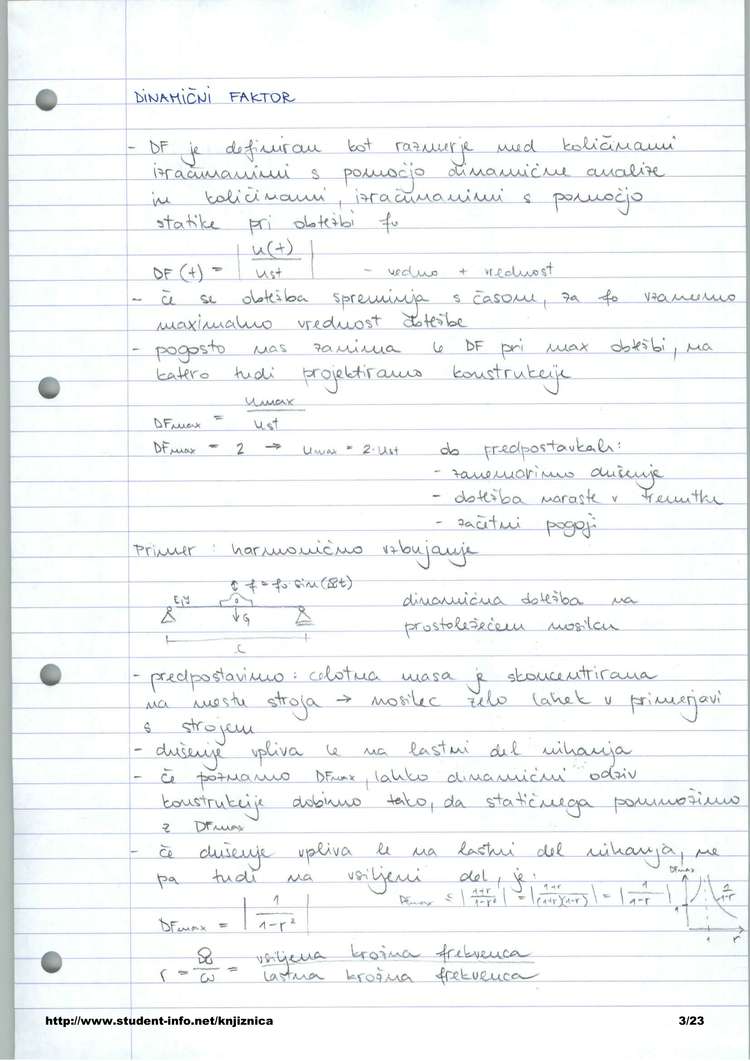 DINAMIČNI FAKTOR
- DF je definiran kot razmerje med količinami
izračunanimi s pomočjo dinamične analize
in količinami, izračunanimi s pomočjo
statike pri obtežbi f₀
DF (t) = | u(t) / ust | - vedno + vrednost
- če se obtežba spreminja s časom, za f₀ vzamemo
maximalno vrednost obtežbe
- pogosto nas zanima le DF pri max obtežbi, na
katero tudi projektiramo konstrukcije
DFmax = umax / ust
DFmax = 2 → umax = 2·ust ob predpostavkah:
- zanemarimo dušenje
- obtežba naraste v trenutku
- začetni pogoji
Primer: harmonično vzbujanje
f = f₀ sin(Ωt)
E,I
G
L
dinamična obtežba na
prostoležečem nosilcu
- predpostavimo: celotna masa je skoncentrirana
na mestu stroja → nosilec zelo lahek v primerjavi
s strojem
- dušenje vpliva le na lastni del nihanja
- če poznamo DFmax, lahko dinamični odziv
konstrukcije dobimo tako, da statičnega pomnožimo
z DFmax
- če dušenje vpliva le na lastni del nihanja, ne
pa tudi na vsiljeni del, je:
DFmax ≤ | 1+r / 1-r² | = | 1+r / (1+r)(1-r) | = | 1 / 1-r |
DFmax
1
1
r
DFmax = | 1 / 1-r² |
r = Ω / ω = vsiljena krožna frekvenca / lastna krožna frekvenca
http://www.student-info.net/knjiznica 3/23